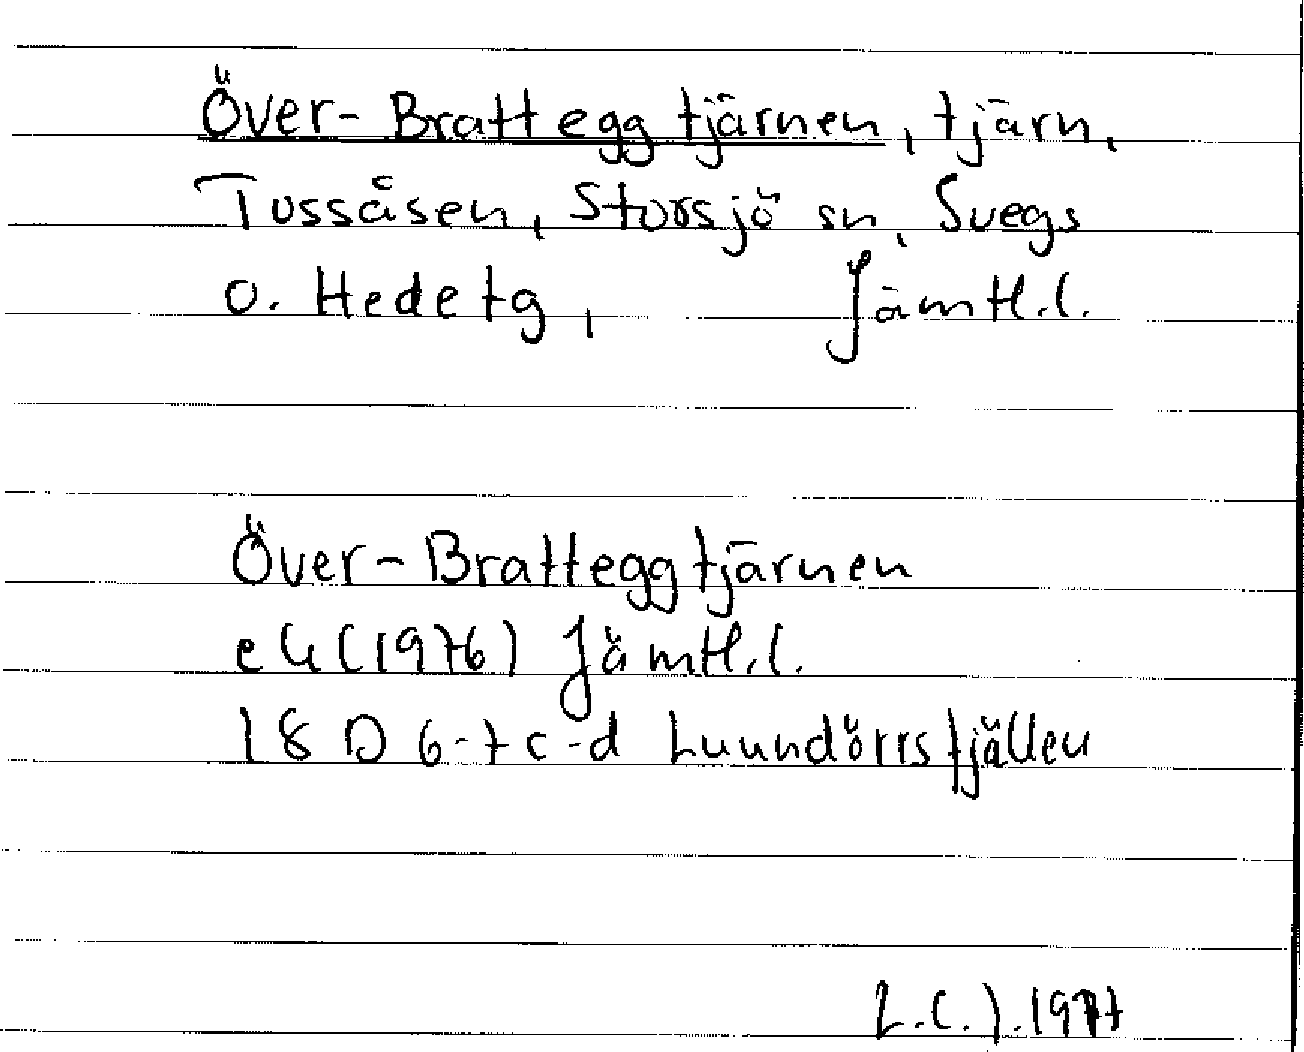 Över-Bratteggtjärnen, tjärn,
Tossåsen, Storsjö sn, Svegs
o. Hede tg, Jämtl.l.
Över-Bratteggtjärnen
ek (1976) Jämtl.l.
18 D 6-7 c-d Lunndörrsfjällen
L.C.J. 1977